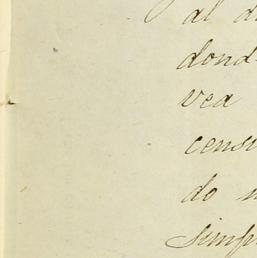 al d
dond
vea
censu
do n
simp